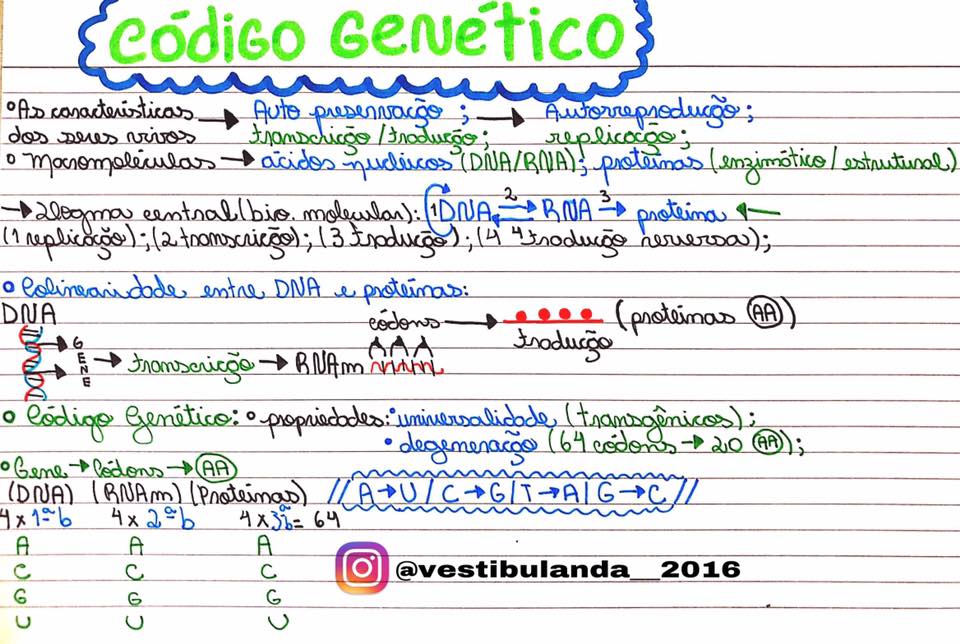 CÓDIGO GENÉTICO
• As características → Auto preservação ; → Autorreprodução ;
dos seres vivos transcrição / tradução ; replicação ;
• Macromoléculas → ácidos nucléicos (DNA/RNA) ; proteínas (enzimático / estrutural)
→ Dogma central (bio. molecular) : 1 DNA 2 ⇄ RNA 3 → proteína ←
(1 replicação) ; (2 transcrição) ; (3 tradução) ; (4 "tradução reversas) ;
• Colinearidade entre DNA e proteínas :
DNA
códons → (proteínas AA)
tradução
GENE → transcrição → RNAm
• Código Genético : • propriedades : • universalidade (transgênicos) ;
• degeneração (64 códons → 20 AA) ;
• Gene → Códons → AA
(DNA) (RNAm) (Proteínas) // A→U / C→G / T→A / G→C //
4 x 1ª b 4 x 2ª b 4 x 3ª b = 64
A A A
C C C
G G G
U U U
@vestibulanda__2016